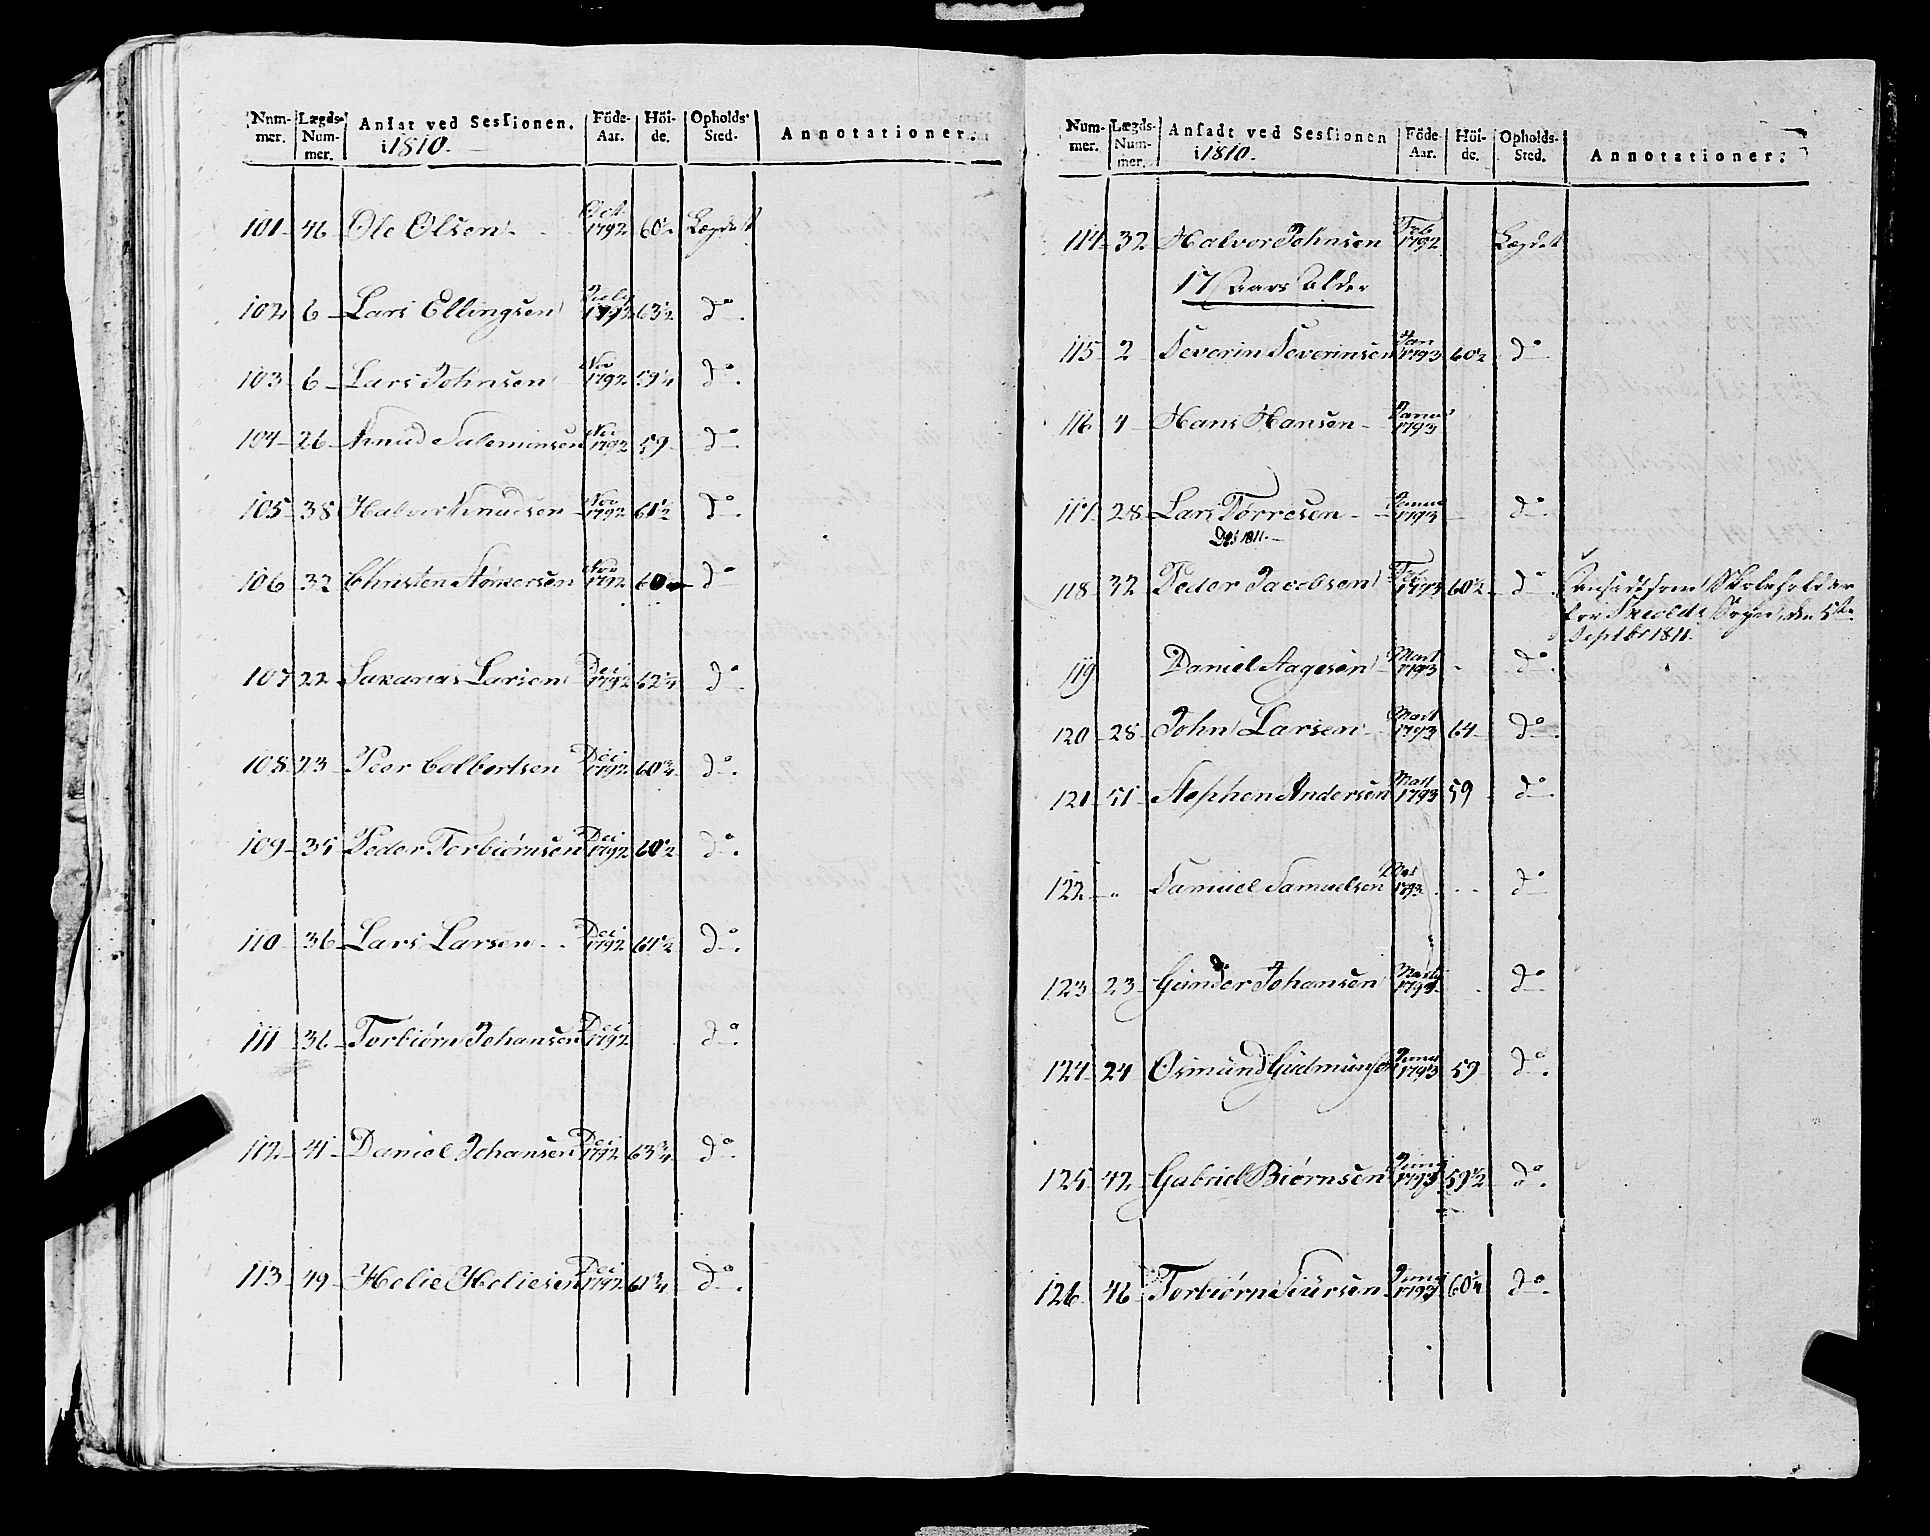 Num- Lægds- Ansat ved Sessionen. Föde- Höi- Opholds- Annotationer.
mer. Num- i 1810. Aar. de. Sted.
mer.
101 46 Ole Olsen Oct. 1792 Lægdet
102 6 Lars Ellingsen July 1792 63½ do.
103 6 Lars Johnsen Nov 1792 do.
104 26 Knud Salomonsen Nov 1792 59 do
105 38 Halvor Knudsen Nov 1792 61½ do.
106 32 Christen Nov 1792 do
107 22 Sakarias Larsen Dec 1792 62¼ do.
108 23 Peer Colbertsen Dec 1792 60¾ do.
109 35 Peder Torbiørnsen Dec 1792 60½ do.
110 36 Lars Larsen Dec 1792 61½ do.
111 36 Torbiørn Johansen Dec 1792 do.
112 41 Daniel Johansen Dec 1792 63¾ do.
113 49 Helie Heliesen Dec 1792 61¾ do.
Num- Lægds- Ansadt ved Sessionen Föde- Höi- Opholds- Annotationer.
mer. Num- i 1810. Aar. de. Sted.
mer.
114 32 Halvor Johnsen Feb 1792 Lægdet
17 Aars Alder
115 2 Severin Severinsen Jan 1793 60½ do
116 4 Hans Hansen 1793
117 28 Lars Torresen 1793 do.
1811.
118 32 Peder Jacobsen Feb 1793 60½ do. Ansadt som Skoleholder
for Sogn, den 5te
Septbr 1811.
119 Daniel Aagesen Mart 1793 do.
120 28 John Larsen Mart 1793 64 do.
121 51 Stephen Andersen 1793 59 do.
122 " Samuel Samuelsen 1793 do
123 23 Gunder Johansen do
124 24 Osmund Gudmunsen 1793 59 do.
125 42 Gabriel Biørnsen Juni 1793 59½ do.
126 46 Torbiørn Siursen 1793 do.